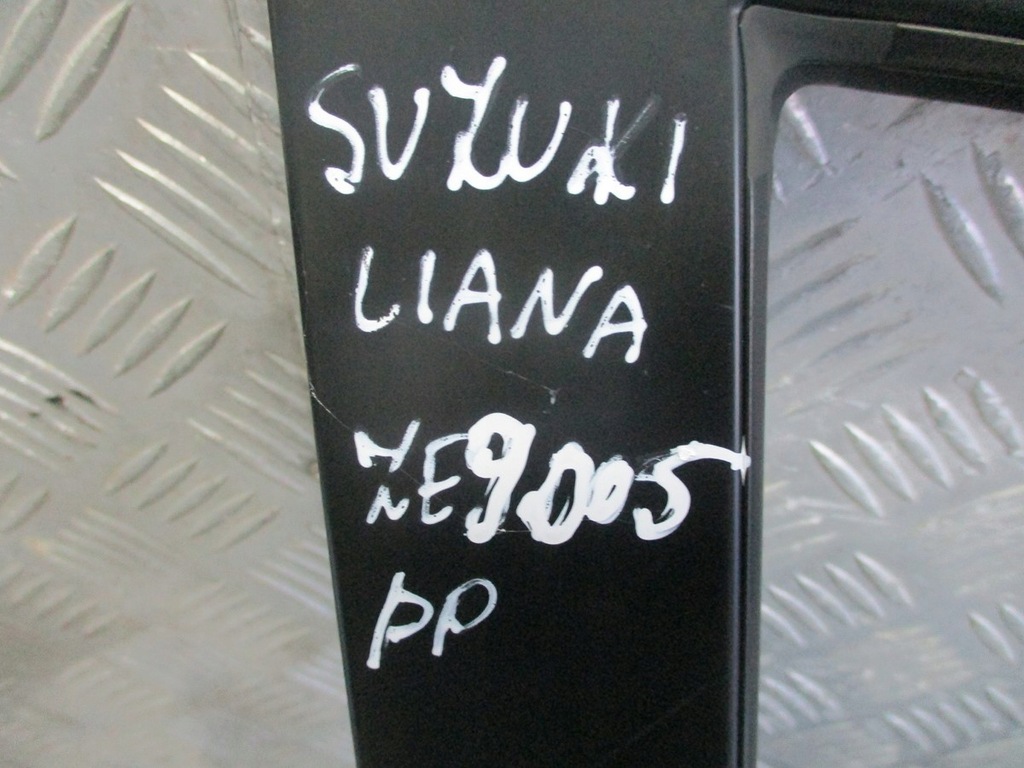 SUZUKI
LIANA
ZE9005
PP